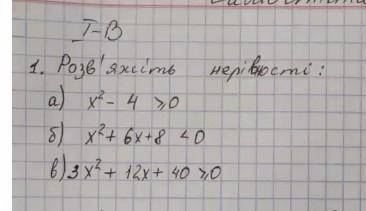 I-В
1. Розв'яжіть нерівності:
а) x² - 4 ⩾0
б) x² + 6x + 8 < 0
в) 3x² + 12x + 40 ⩾0